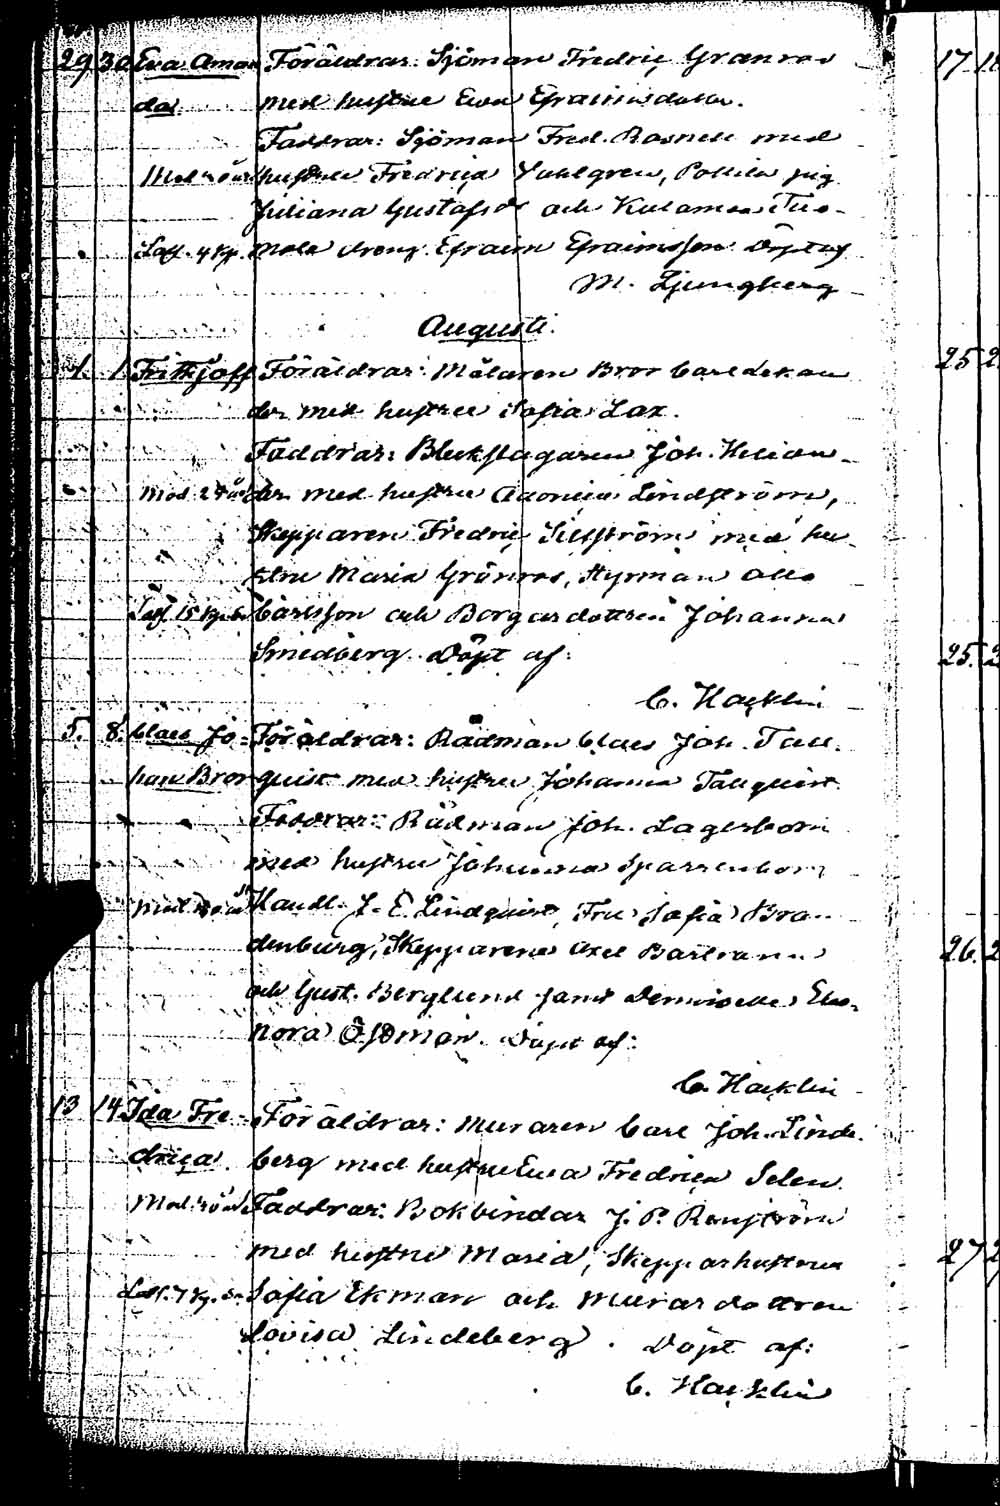 29 30 Eva Aman Föräldrar: Sjöman Fredric Granroos
da. med hustru Eva Efraimsdotter.
Faddrar: Sjöman Fred. Rosnell med
Mod. hustru Fredrica Vahlgren, Pottila pig.
Juliana Gustafsdr och Kulamaa Tuo-
Laft. 4 kp. mola dreng Efraim Efraimsson. Döpt af
M. Ljungberg
Augusti.
1. 1 Frithjoff Föräldrar: Målaren Bror Carl
der med hustru Sofia Lax.
Faddrar: Bleckslagaren Joh. Helan-
Mod. der med hustru Lindström,
Skepparen Fredric Sillström med hu-
stru Maria Grönroos, Styrman Otto
Carlsson och Borgardottren Johanna
Smedberg. Döpt af:
C. Hacklin
5. 8. Claes Jo- Föräldrar: Rådman Claes Joh. Tall-
han Bror quist med hustru Johanna Tallquist.
Faddrar: Rådman Joh. Lagerbom
med hustru Johanna Sparrenbom,
Mod. Handl. J. E. Lindquist, Fru Sofia Bran-
denburg, Skepparene Axel
och Gust. Berglund samt Demoiselle Eleo-
nora Östman. Döpt af:
C. Hacklin
13 14 Ida Fre- Föräldrar: Muraren Carl Joh. Linde-
drica. berg med hustru Eva Fredrica Selen.
Mod. Faddrar: Bokbindar J. P. Renström
med hustru Maria, Skepparhustrun
Sofia Ekman och Murardottren
Lovisa Lindeberg. Döpt af:
C. Hacklin
17
25
25.
26.
27